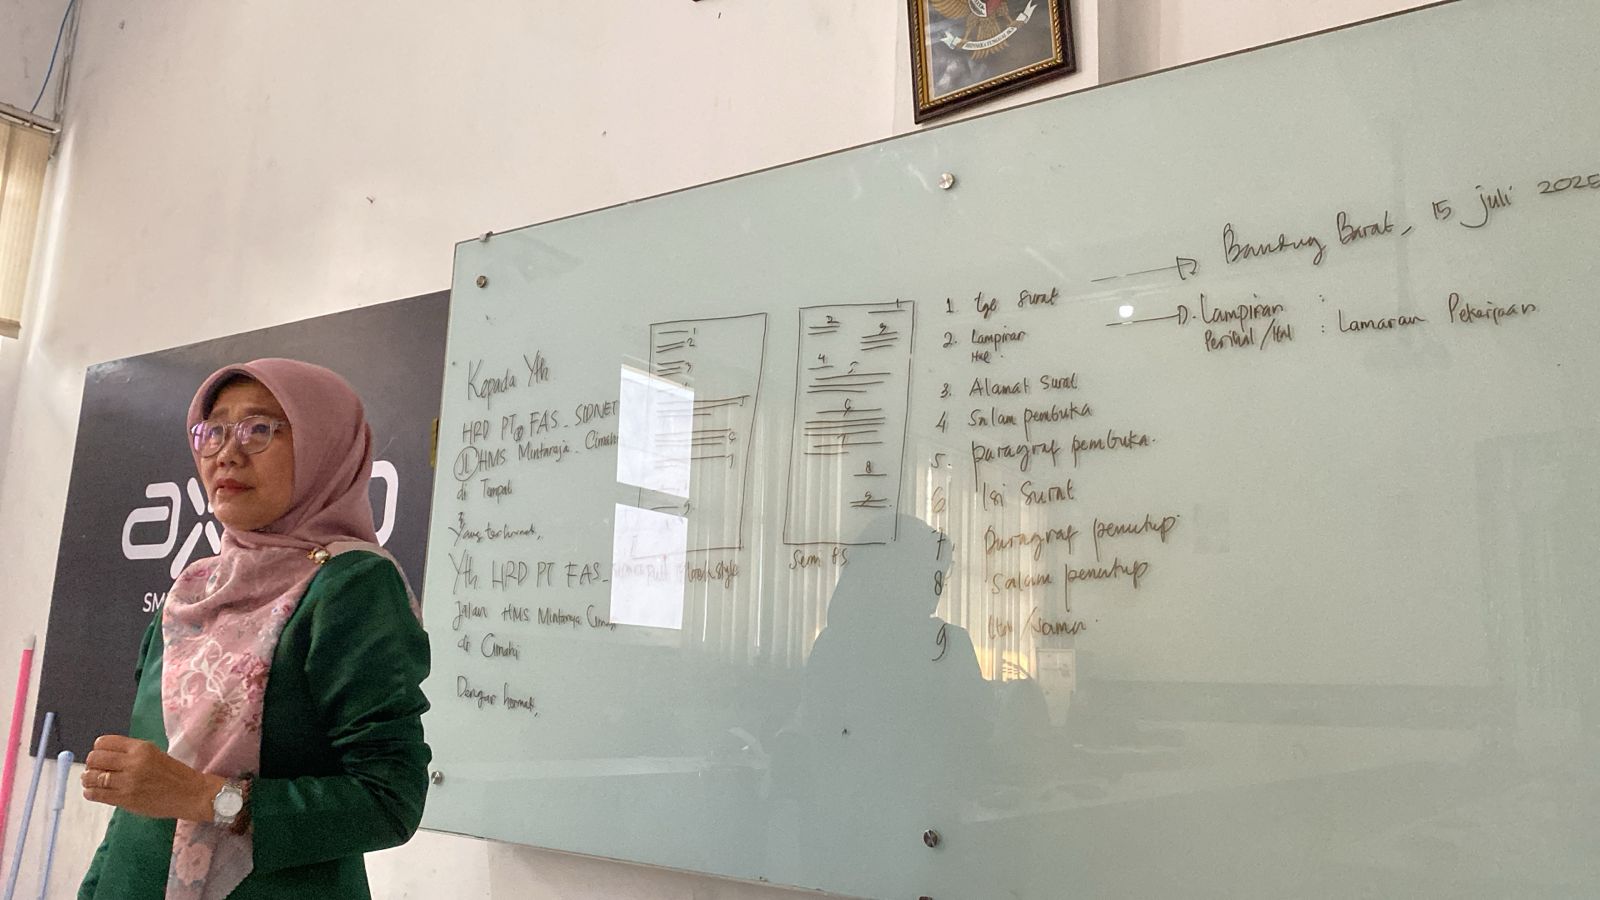 Kepada Yth
HRD PT FAS_SIDNET
Jl HMS Mintareja_Cimahi
di Tempat
Yang terhormat,
Yth. HRD PT FAS_
Jalan HMS Mintareja Cimahi
di Cimahi
Dengan hormat,
1
2
3
5
6
7
9
block style
1
2
3
4
5
6
7
8
9
Semi
1 tgl surat
2. Lampiran
Hal.
3. Alamat surat
4 Salam pembuka
5. paragraf pembuka.
6 Isi Surat
7. Paragraf penutup.
8 Salam penutup
9 ttd/nama
Bandung Barat, 15 juli 2025
Lampiran :
Perihal/Hal : Lamaran Pekerjaan
SM